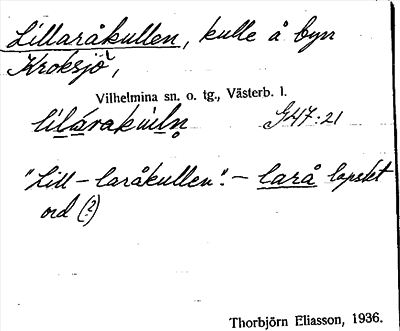 Lillaråkullen, kulle å byn
Kroksjö,
Vilhelmina sn. o. tg., Västerb. l.
lilárakuiln̥ G47:21
"Lill-laråkullen". - larå lapskt
ord (?)
Thorbjörn Eliasson, 1936.